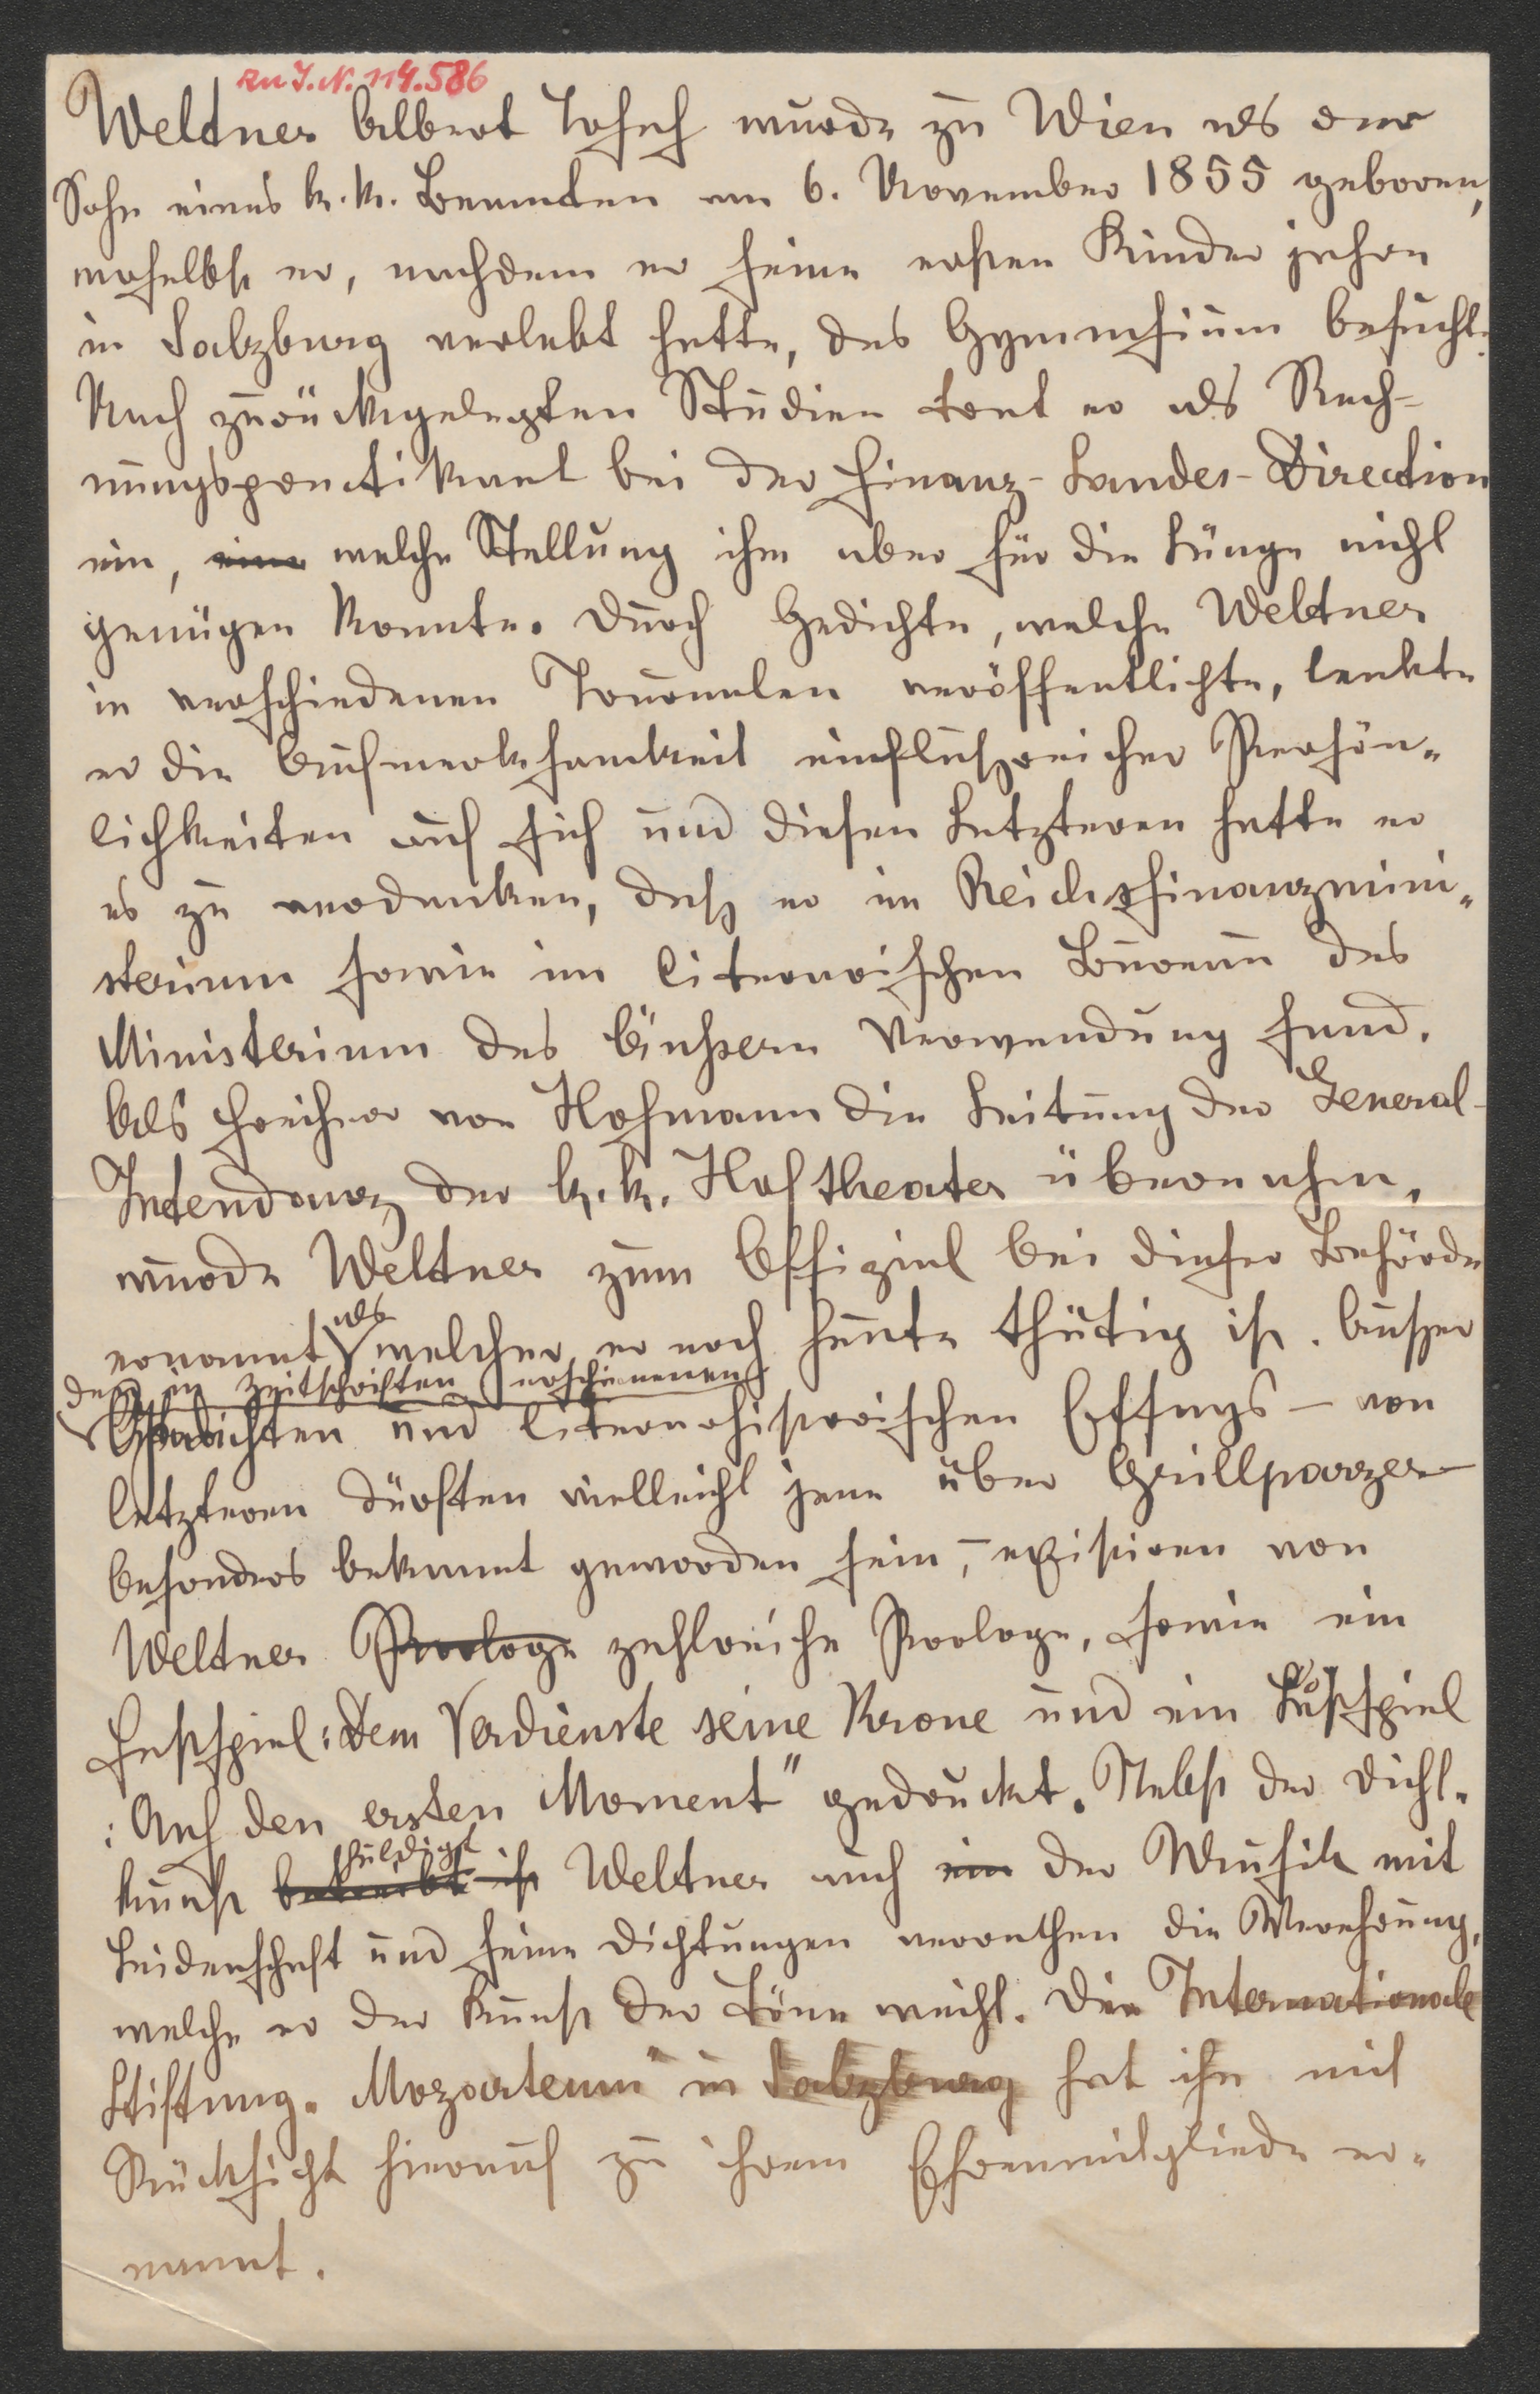 zu I.N. 114.586
Weltner Albert Josef wurde zu Wien als der
Sohn eines k. k. Beamten am 6. November 1855 geboren,
woselbst er, nachdem er seine ersten Kinder jahre
in Salzburg verlebt hatte, das Gymnasium besuchte.
Nach zurückgelegten Studien trat er als Rech-
nungspractikant bei der Finanz-Landes-Direction
ein, eine welche Stellung ihm aber für die Länge nicht
genügen konnte. Durch Gedichte, welche Weltner
in verschiedenen Journalen veröffentlichte, lenkte
er die Aufmerksamkeit einflußreicher Persön-
lichkeiten auf sich und diesen Letzteren hatte er
es zu verdanken, daß er im Reichsfinanzmini-
sterium sowie im literarischen Bureau des
Ministerium des Äußern Verwendung fand.
Als Freiherr von Hofmann die Leitung der General-
Intendanz der k. k. Hoftheater übernahm,
wurde Weltner zum Offizial bei dieser Behörde
ernannt, als welcher er noch heute thätig ist. Außer
den in Zeitschriften erschienenen
Gedichten und literarhistorischen Essays – von
letzteren dürften vielleicht jene über Grillparzer
besonders bekannt geworden sein –, existiren von
Weltner Prologe zahlreiche Prologe, sowie ein
Festspiel: Dem Verdienste seine Krone und ein Lustspiel
: Auf den ersten Moment" gedruckt. Nebst der Dicht-
kunst betreibt ist huldigt Weltner auch ein der Musik mit
Leidenschaft und seine Dichtungen verrathen die Verehrung,
welche er der Kunst der Töne weiht. Die Internationale
Stiftung "Mozarteum" in Salzburg hat ihn mit
Rücksicht hierauf zu ihrem Ehrenmitgliede er-
nannt.